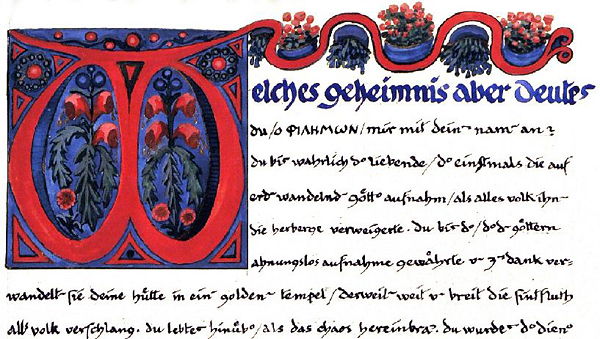 Welches geheimnis aber deutes
du/o ΦΙΛΗΜΩΝ/mir mit dein nam an?
du bis wahrlich do liebende/do einstmals die auf
erd wandelnd götto aufnahm/als alles volk ihn-
die herberge verweigerte. du bis do/do göttern
ahnungslos aufnahme gewährte u z dank ver-
wandelt sie deine hütte in ein golden tempel/derweil weit u breit die sintfluth
all volk verschlang. du lebtes hinübo/als das chaos hereinbra. du wurdes do dieno